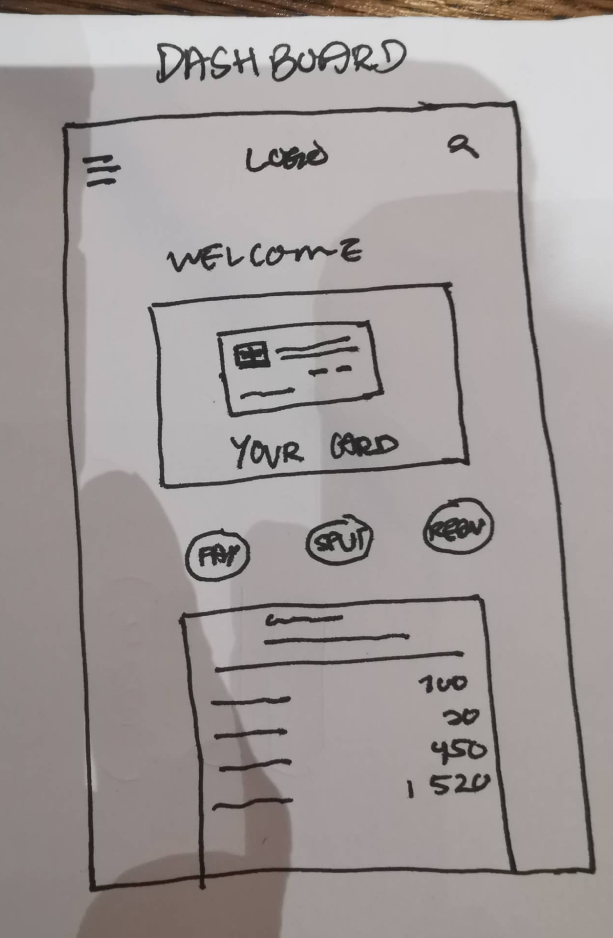 DASHBOARD
LOGO
WELCOME
YOUR CARD
PAY SPLIT
100
20
450
1 520